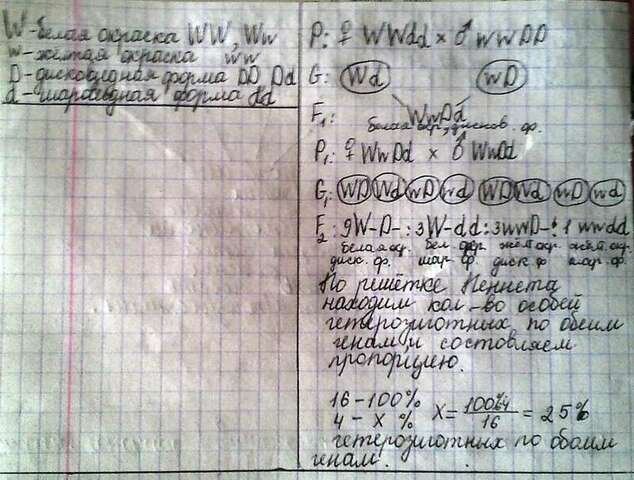 W-белая окраска WW, Ww
w-жёлтая окраска ww
D-дисковидная форма DD Dd
d-шаровидная форма dd
P: ♀ WWdd × ♂ wwDD
G: Wd wD
F₁: WwDd
белая окр., дисков. ф.
P₁: ♀ WwDd × ♂ WwDd
G₁: WD Wd wD wd WD Wd wD wd
F₂: 9W-D-: 3W-dd: 3wwD-: 1 wwdd
белая окр. бел. окр. жёлт. окр. жёлт. окр.
диск. ф. шар. ф. диск ф шар. ф.
По решётке Пеннета
находим кол-во особей
гетерозиготных по обеим
генам и составляем
пропорцию.
16-100%
4 - X % X= 100·4/16 = 25%
гетерозиготных по обоим
генам.